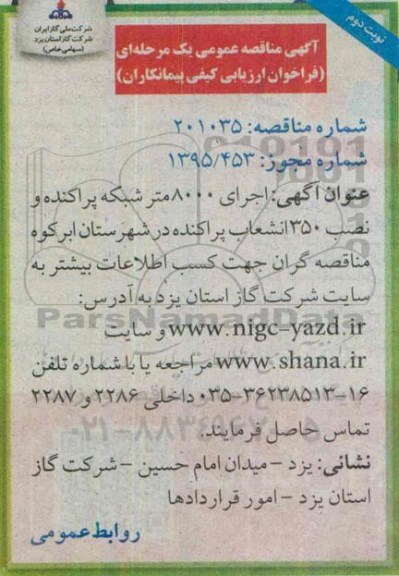 شرکت ملی گاز ایران
شرکت گاز استان یزد
(سهامی خاص)
نوبت دوم
آگهی مناقصه عمومی یک مرحله‌ای
(فراخوان ارزیابی کیفی پیمانکاران)
شماره مناقصه: ۲۰۱۰۳۵
شماره مجوز: ۱۳۹۵/۴۵۳
عنوان آگهی: اجرای ۸۰۰۰ متر شبکه پراکنده و
نصب ۳۵۰ انشعاب پراکنده در شهرستان ابرکوه
مناقصه گران جهت کسب اطلاعات بیشتر به
سایت شرکت گاز استان یزد به آدرس:
www.nigc-yazd.ir و سایت
www.shana.ir مراجعه یا با شماره تلفن
۰۳۵-۳۶۲۳۸۵۱۳-۱۶ داخلی ۲۲۸۶ و ۲۲۸۷
تماس حاصل فرمایند.
نشانی: یزد - میدان امام حسین - شرکت گاز
استان یزد - امور قراردادها
روابط عمومی
ParsNamadData